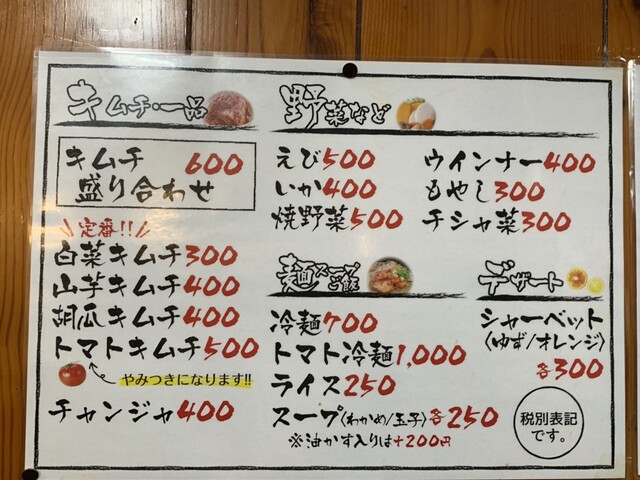 キムチ・一品
キムチ 600
盛り合わせ
定番!!
白菜キムチ300
山芋キムチ400
胡瓜キムチ400
トマトキムチ500
やみつきになります!!
チャンジャ400
野菜など
えび500
いか400
焼野菜500
ウインナー400
もやし300
チシャ菜300
麺スープご飯
冷麺700
トマト冷麺1,000
ライス250
スープ(わかめ/玉子)各250
※油かす入りは+200円
デザート
シャーベット
(ゆず/オレンジ)
各300
税別表記
です。